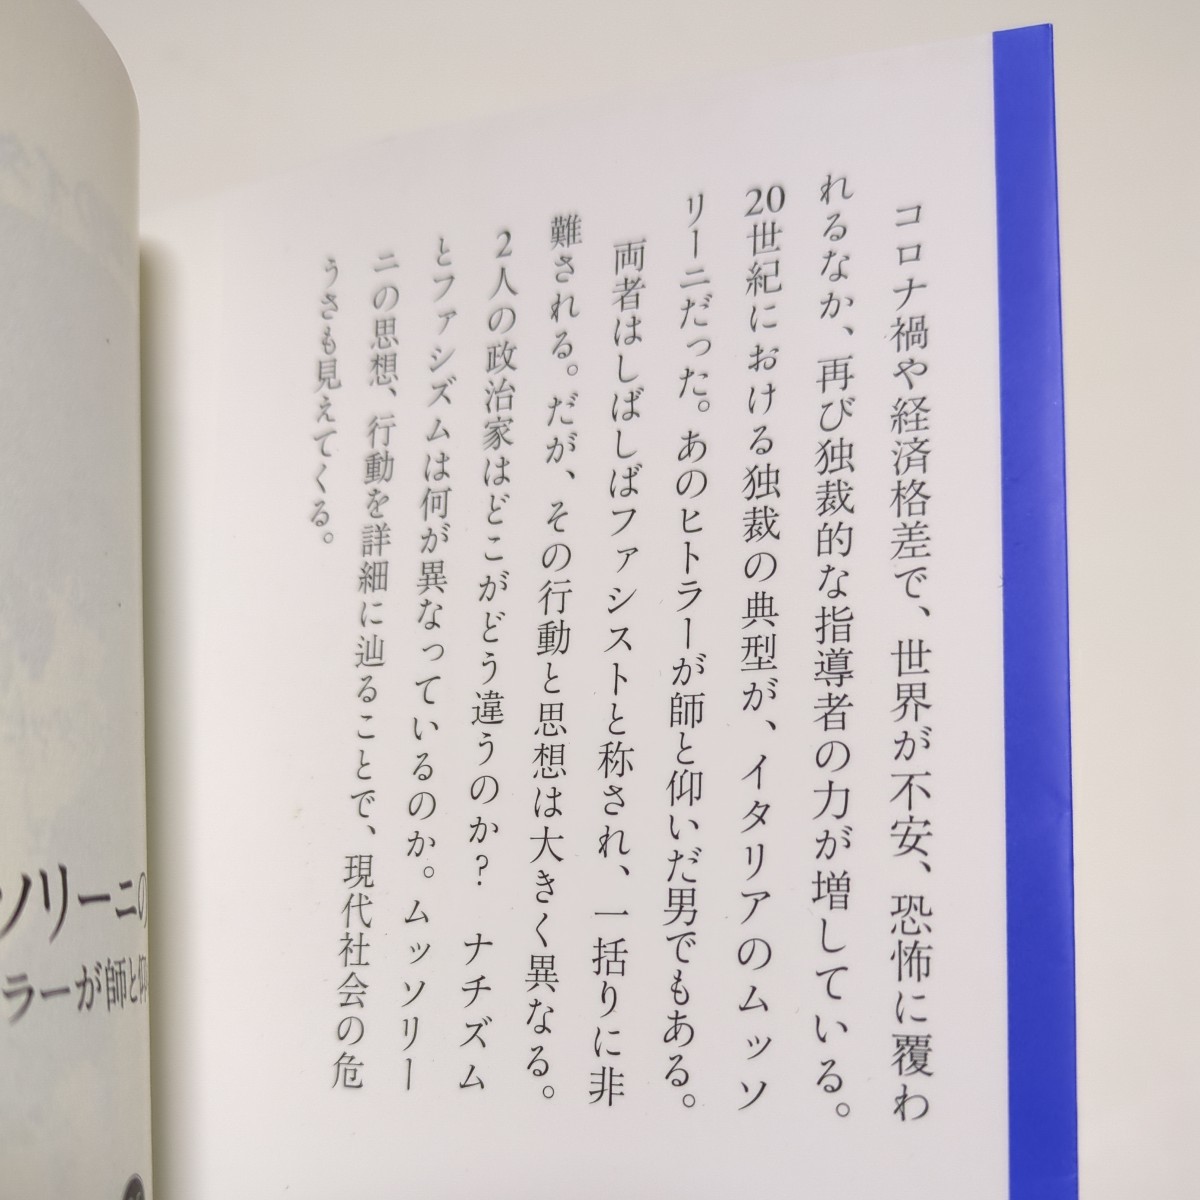 コロナ禍や経済格差で、世界が不安、恐怖に覆わ
れるなか、再び独裁的な指導者の力が増している。
20世紀における独裁の典型が、イタリアのムッソ
リーニだった。あのヒトラーが師と仰いだ男でもある。
両者はしばしばファシストと称され、一括りに非
難される。だが、その行動と思想は大きく異なる。
2人の政治家はどこがどう違うのか？　ナチズム
とファシズムは何が異なっているのか。ムッソリー
ニの思想、行動を詳細に辿ることで、現代社会の危
うさも見えてくる。
ソリーニの
ラーが師と仰